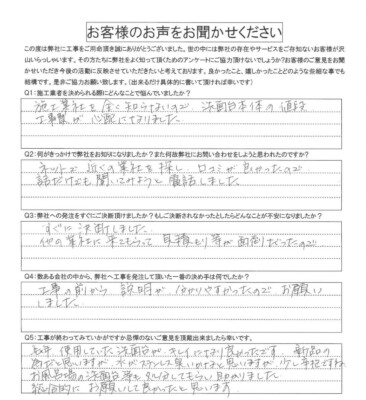 お客様のお声をお聞かせください
この度は弊社に工事をご用命頂き誠にありがとうございました。世の中には弊社の存在やサービスをご存知ないお客様が沢
山いらっしゃいます。その方たちに弊社をよく知って頂くためのアンケートにご協力頂けないでしょうか?お客様のご意見をお聞
かせいただき今後の活動に反映させていただきたいと考えております。良かったこと、嬉しかったことどのような些細な事でも
結構です。是非ご協力お願い致します。(出来るだけ具体的に書いて頂ければ幸いです)
Q1:施工業者を決められる際にどんなことで悩んでいましたか?
施工業社を全く知らないので、洗面台本体の値段
工事費が心配になりました。
Q2:何がきっかけで弊社をお知りになりましたか?また何故弊社にお問い合わせをしようと思われたのですか?
ネットで近くの業社を探し、口コミが良かったので
話だけでも聞いてみようと電話しました。
Q3:弊社への発注をすぐにご決断頂けましたか?もしご決断されなかったとしたらどんなことが不安になりましたか?
すぐに決断しました。
他の業社に来てもらって見積もり等が面倒だったので
Q4:数ある会社の中から、弊社へ工事を発注して頂いた一番の決め手は何でしたか?
工事の前から説明が分かりやすかったのでお願い
しました。
Q5:工事が終わってみていかがですか忌憚のないご意見を頂戴出来ましたら幸いです。
長年使用していた洗面台が、キレイになり良かったです。新品の
為だと思いますが、水がステンレス臭いかなと思いますが、少し予想ですね
お風呂場の洗面台等も処分してもらい助かりました。
総合的にお願いして良かったと思います